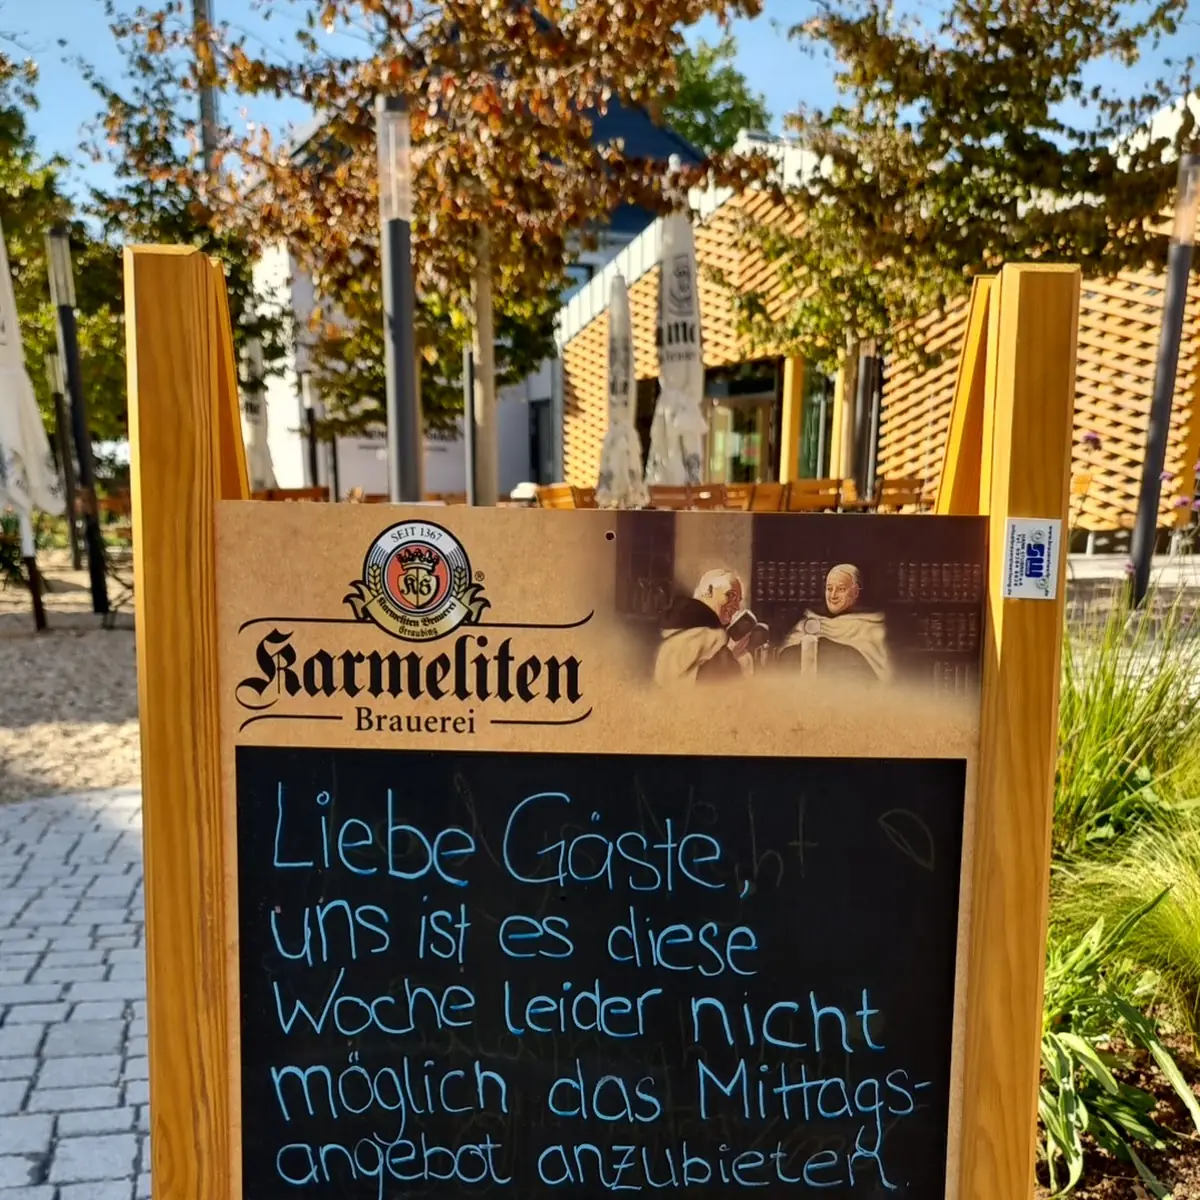 SEIT 1367
KS
Karmeliten Brauerei
Straubing
Karmeliten
Brauerei
Liebe Gäste,
uns ist es diese
Woche leider nicht
möglich das Mittags-
angebot anzubieten.